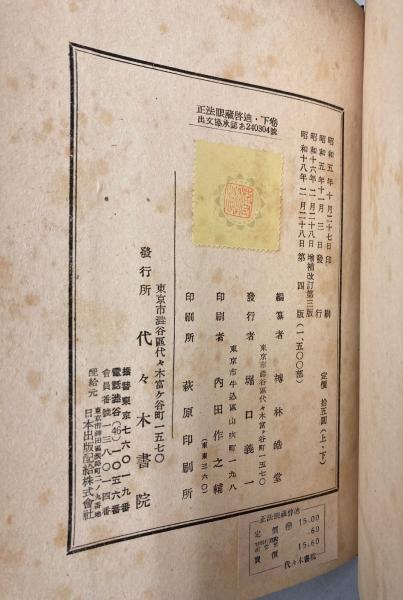 正法眼藏啓迪・下卷
出文協承認あ240804號
昭和五年十月二十七日印刷
昭和五年十一月三日發行
昭和十六年二月二十八日增補改訂第三版
昭和十八年二月二十八日第四版(一、五〇〇部)
定價 拾五圓(上、下)
編纂者 榑林皓堂
東京市澁谷區代々木富ヶ谷町一五七〇
發行者 堀口義一
東京市牛込區山吹町一九八
印刷者 內田作之輔
(東東三六〇)
印刷所 萩原印刷所
東京市澁谷區代々木富ヶ谷町一五七〇
發行所 代々木書院
振替東京七六〇一九番
電話澁谷(46)一〇五六番
會員番號一三八〇一四番
東京市神田區淡路町二ノ九番地
配給元 日本出版配給株式會社
正法眼藏啓迪
定價 15.00
.60
賣價 15.60
代々木書院